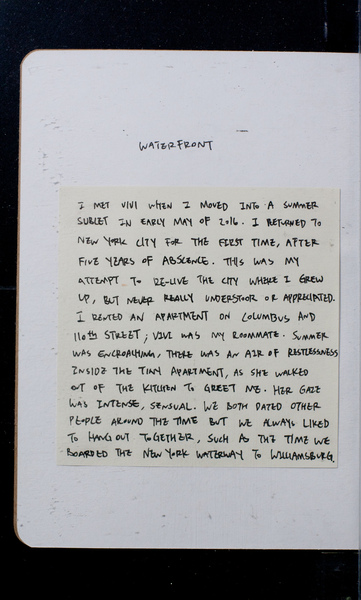 WATERFRONT
I MET VIVI WHEN I MOVED INTO A SUMMER
SUBLET IN EARLY MAY OF 2016. I RETURNED TO
NEW YORK CITY FOR THE FIRST TIME, AFTER
FIVE YEARS OF ABSCENCE. THIS WAS MY
ATTEMPT TO RE-LIVE THE CITY WHERE I GREW
UP, BUT NEVER REALLY UNDERSTOOR OR APPRECIATED.
I RENTED AN APARTMENT ON COLUMBUS AND
110th STREET; VIVI WAS MY ROOMMATE. SUMMER
WAS ENCROACHING, THERE WAS AN AIR OF RESTLESSNESS
INSIDE THE TINY APARTMENT, AS SHE WALKED
OUT OF THE KITCHEN TO GREET ME. HER GAZE
WAS INTENSE, SENSUAL. WE BOTH DATED OTHER
PEOPLE AROUND THE TIME BUT WE ALWAYS LIKED
TO HANG OUT TOGETHER, SUCH AS THE TIME WE
BOARDED THE NEW YORK WATERWAY TO WILLIAMSBURG.